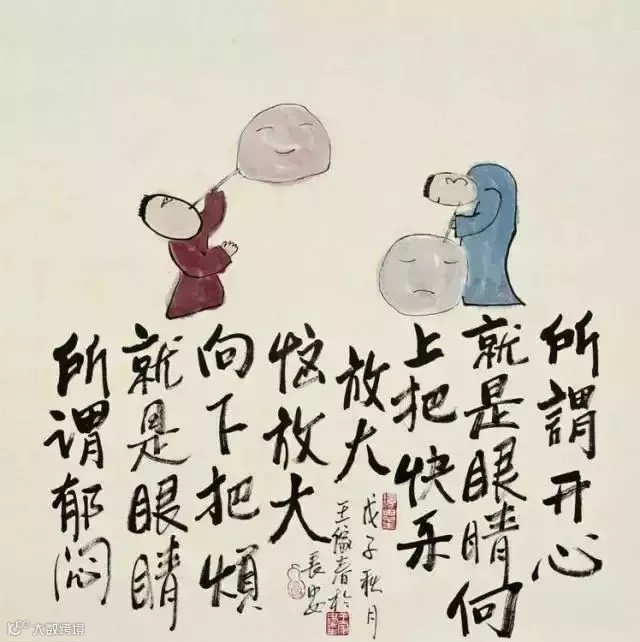 所謂开心
就是眼睛向
上把快乐
放大
所谓郁闷
就是眼睛
向下把煩
恼放大
戊子秋月
王春於
長安
大数跨境